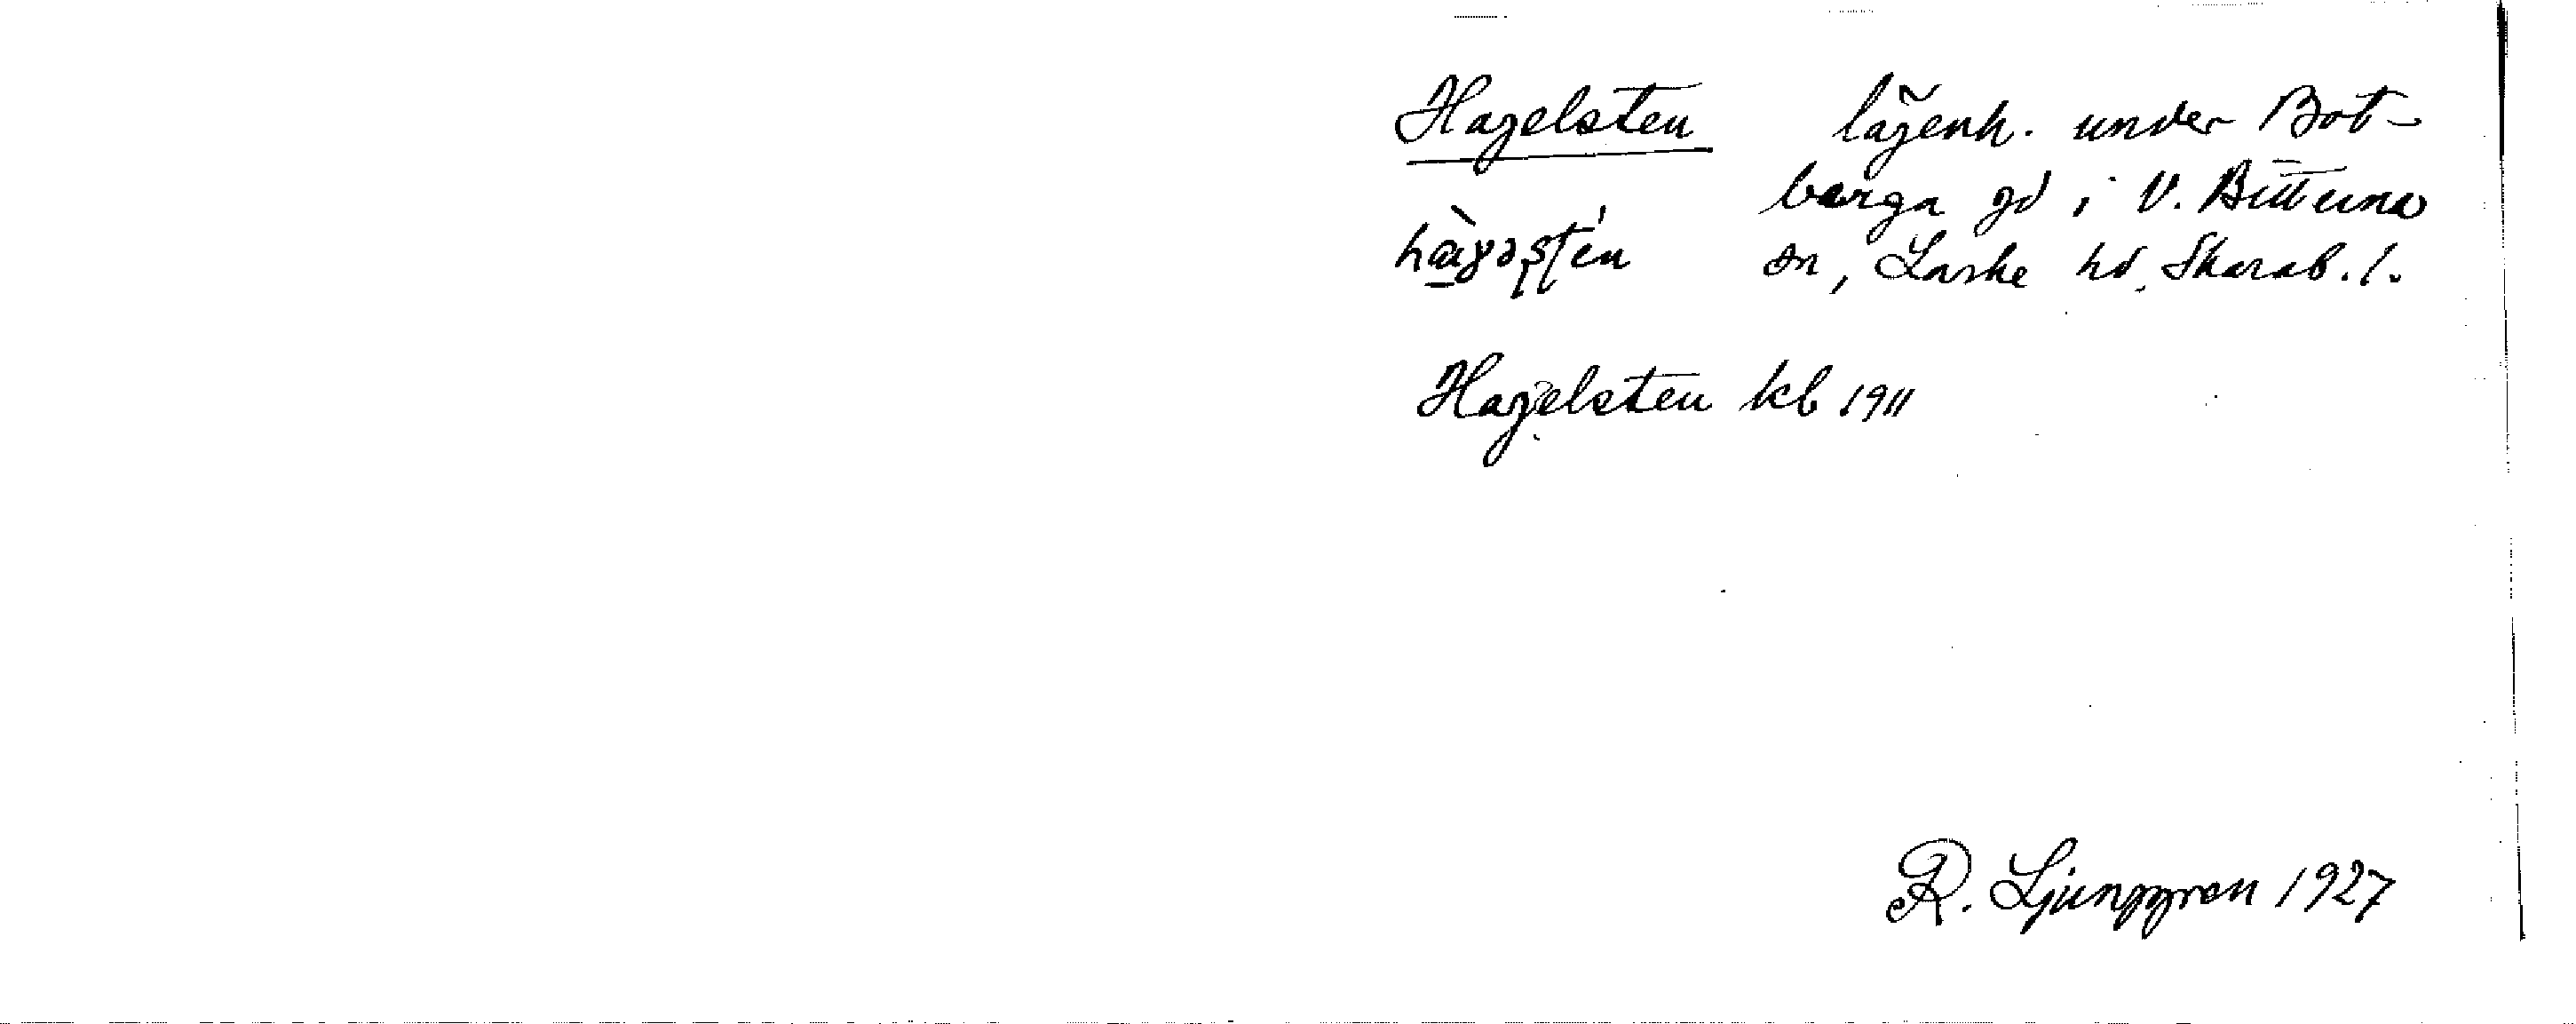 Hagelsten lägenh. under Bot-
berga gd i V. Bitterna
hàɣəstén sn, Laske hd, Skarab. l.
Hagelsten kb 1911
R. Ljunggren 1927